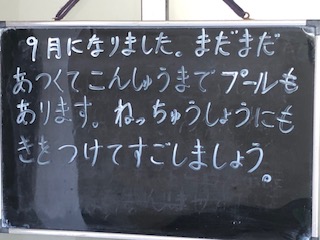 9月になりました。まだまだ
あつくてこんしゅうまでプールも
あります。ねっちゅうしょうにも
きをつけてすごしましょう。